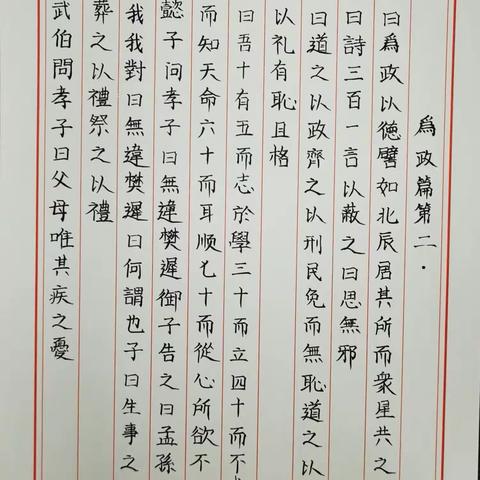 爲政篇第二.
曰爲政以德譬如北辰居其所而衆星共之
曰詩三百一言以蔽之曰思無邪
曰道之以政齊之以刑民免而無恥道之以
以礼有恥且格
曰吾十有五而志於學三十而立四十而不
而知天命六十而耳顺七十而從心所欲不
懿子问孝子曰無違樊遲御子告之曰孟孫
我我對曰無違樊遲曰何謂也子曰生事之
葬之以禮祭之以禮
武伯問孝子曰父母唯其疾之憂